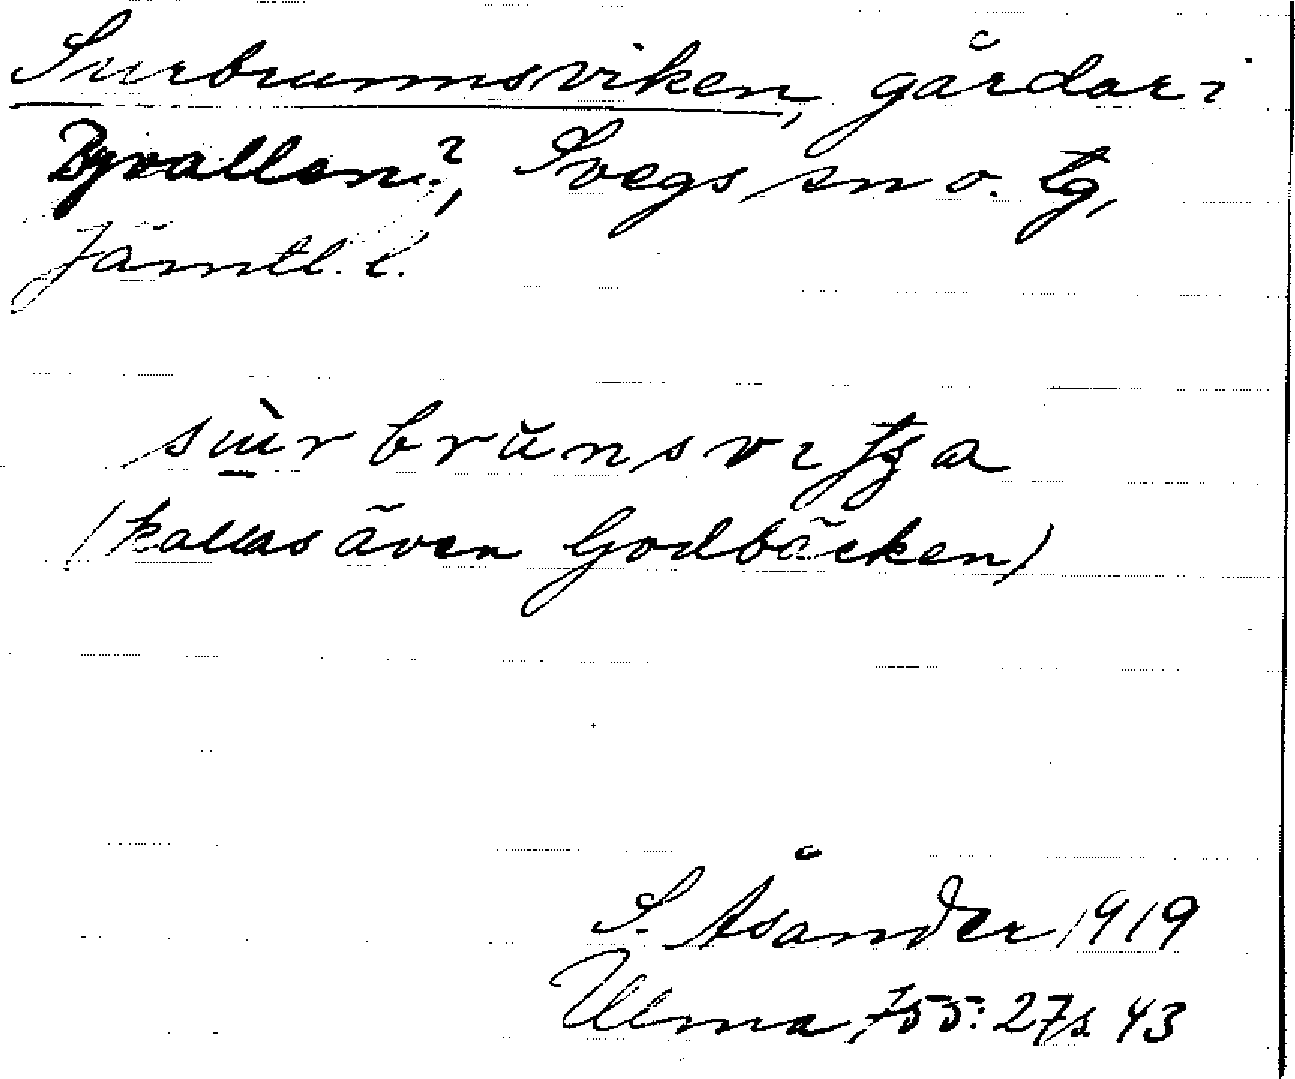 Surbrunnsviken, gårdar i
Byvallen?, Svegs sn o. tg,
Jämtl. l.
sùrbrŭnsvitja
(kallas även Godbäcken)
S. Åsander 1919
Ulma 755:27 s. 43